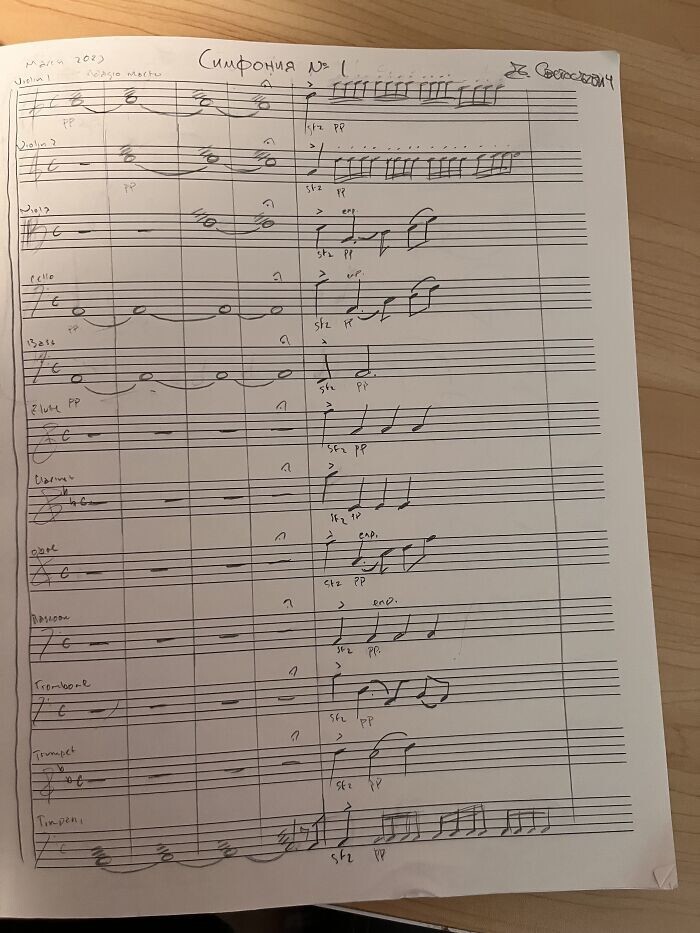 March 2023 Симфония № 1
Violin 1 Adagio Molto
pp sfz pp
Violin 2
pp sfz pp
Viola
esp.
sfz pp
Cello
esp.
pp sfz pp
Bass
pp sfz pp
Flute
sfz pp
Clarinet
sfz pp
Oboe
esp.
sfz pp
Bassoon
esp.
sfz pp.
Trombone
sfz pp
Trumpet
sfz pp
Timpani
sfz pp